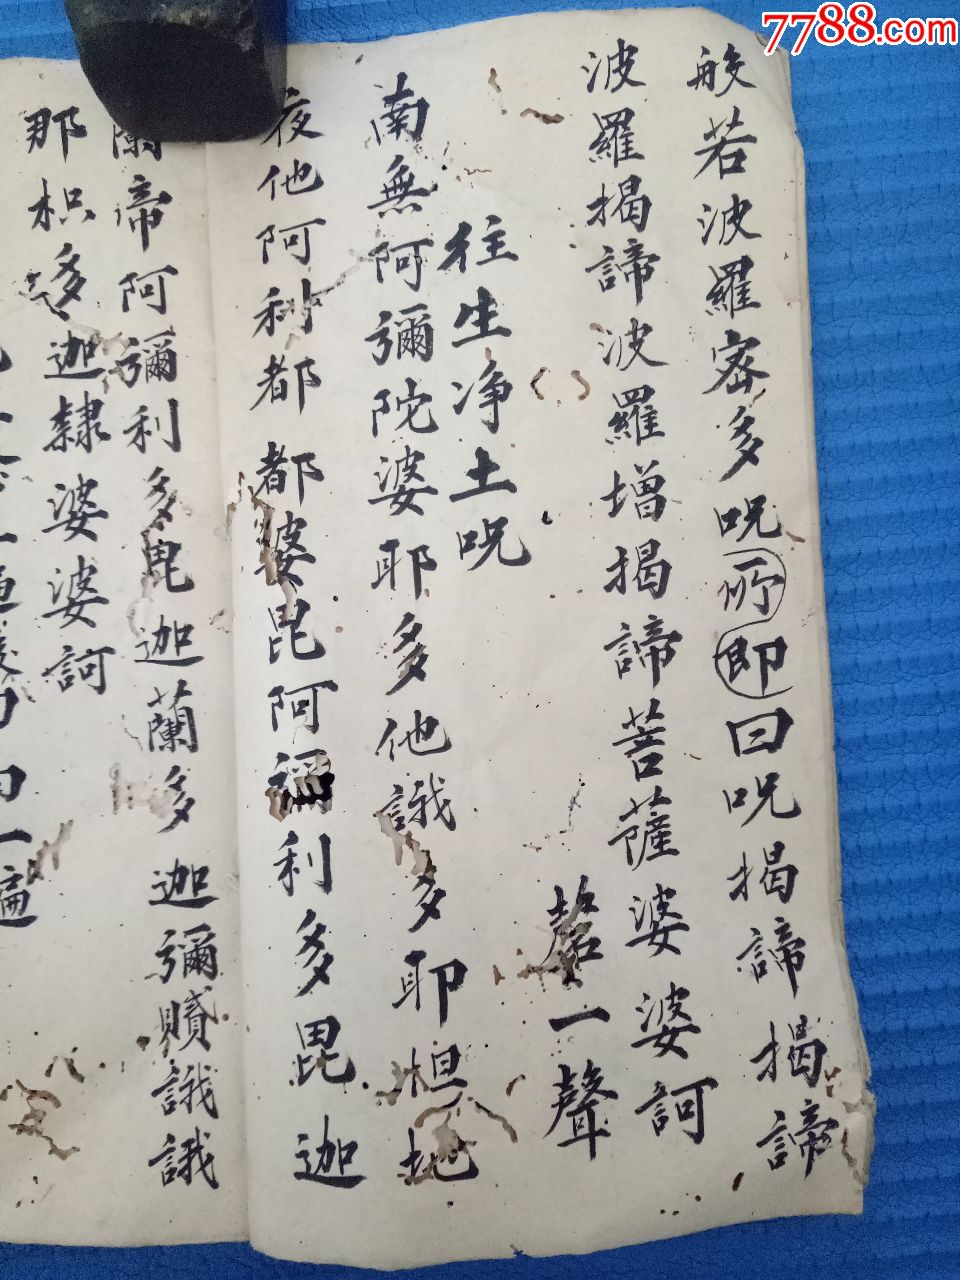 7788.com
般若波羅密多呪所即曰呪揭諦揭諦
波羅揭諦波羅增揭諦菩薩婆婆訶
磬一聲
往生净土呪
南無阿彌陀婆耶多他誐多耶怛地
夜他阿利都都婆毘阿彌利多毘迦
蘭帝阿彌利多毘迦蘭多迦彌贃誐誐
那枳多迦隸婆婆訶